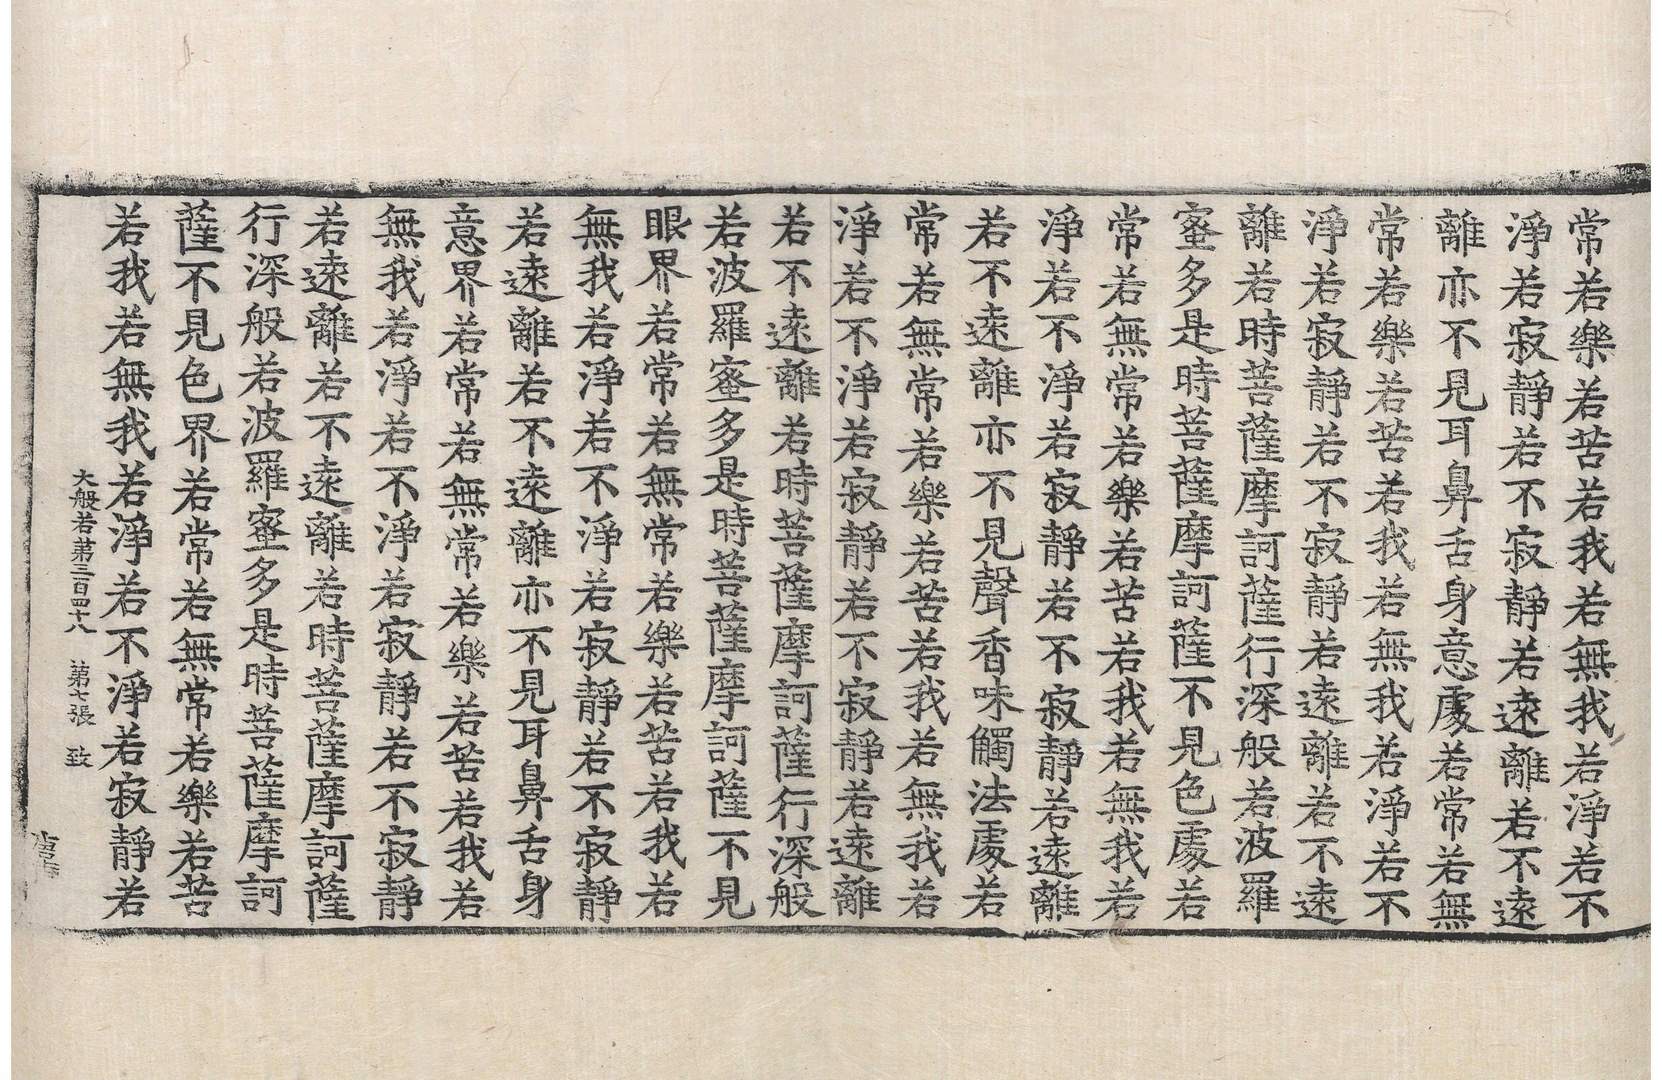 常若樂若苦若我若無我若淨若不
淨若寂靜若不寂靜若遠離若不遠
離亦不見耳鼻舌身意處若常若無
常若樂若苦若我若無我若淨若不
淨若寂靜若不寂靜若遠離若不遠
離若時菩薩摩訶薩行深般若波羅
蜜多是時菩薩摩訶薩不見色處若
常若無常若樂若苦若我若無我若
淨若不淨若寂靜若不寂靜若遠離
若不遠離亦不見聲香味觸法處若
常若無常若樂若苦若我若無我若
淨若不淨若寂靜若不寂靜若遠離
若不遠離若時菩薩摩訶薩行深般
若波羅蜜多是時菩薩摩訶薩不見
眼界若常若無常若樂若苦若我若
無我若淨若不淨若寂靜若不寂靜
若遠離若不遠離亦不見耳鼻舌身
意界若常若無常若樂若苦若我若
無我若淨若不淨若寂靜若不寂靜
若遠離若不遠離若時菩薩摩訶薩
行深般若波羅蜜多是時菩薩摩訶
薩不見色界若常若無常若樂若苦
若我若無我若淨若不淨若寂靜若
大般若第三百四十八 第七張 致